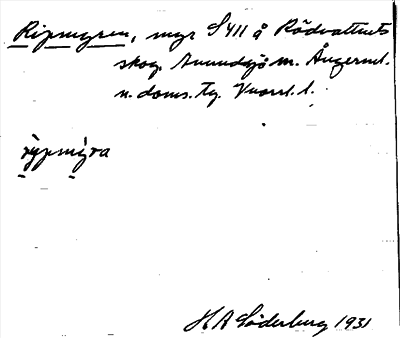 Ripmyren, myr S 411 å Rödvattnets
skog. Anundsjö sn. Ångerml.
n. doms. tg. Vnorrl. l.
rypmýra
H A Söderberg 1931